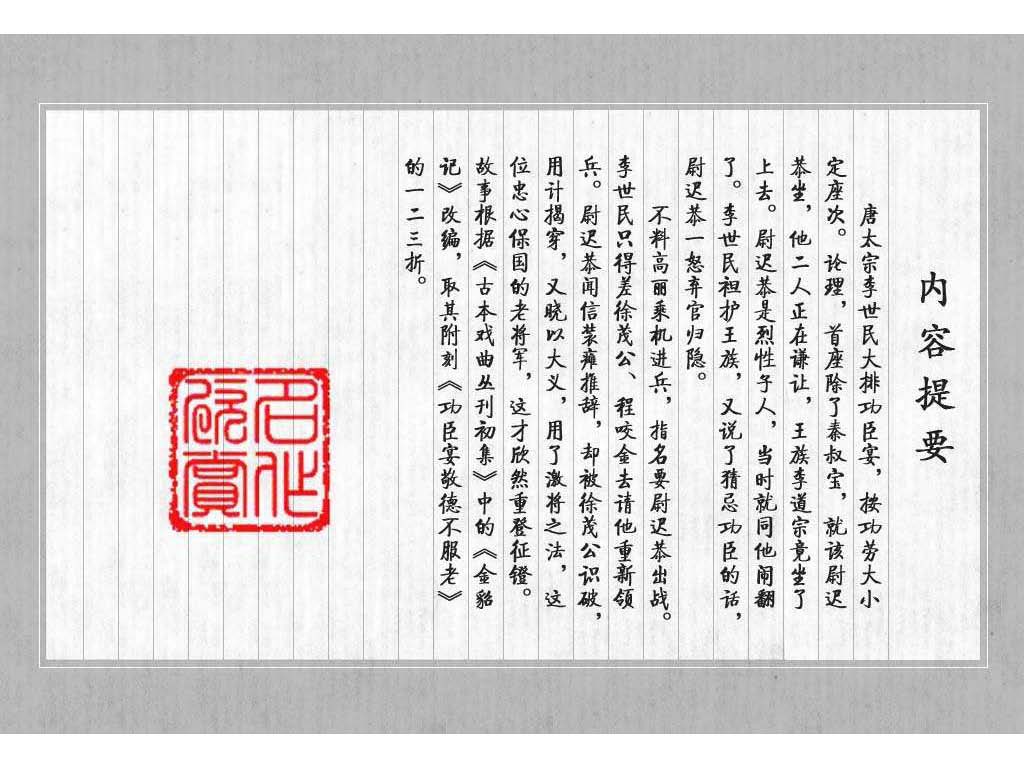 内容提要
唐太宗李世民大排功臣宴，按功劳大小
定座次。论理，首座除了秦叔宝，就该尉迟
恭坐，他二人正在谦让，王族李道宗竟坐了
上去。尉迟恭是烈性子人，当时就同他闹翻
了。李世民袒护王族，又说了猜忌功臣的话，
尉迟恭一怒弃官归隐。
不料高丽乘机进兵，指名要尉迟恭出战。
李世民只得差徐茂公、程咬金去请他重新领
兵。尉迟恭闻信装瘫推辞，却被徐茂公识破，
用计揭穿，又晓以大义，用了激将之法，这
位忠心保国的老将军，这才欣然重登征镫。
故事根据《古本戏曲丛刊初集》中的《金貂
记》改编，取其附刻《功臣宴敬德不服老》
的一二三折。
名作
欣赏